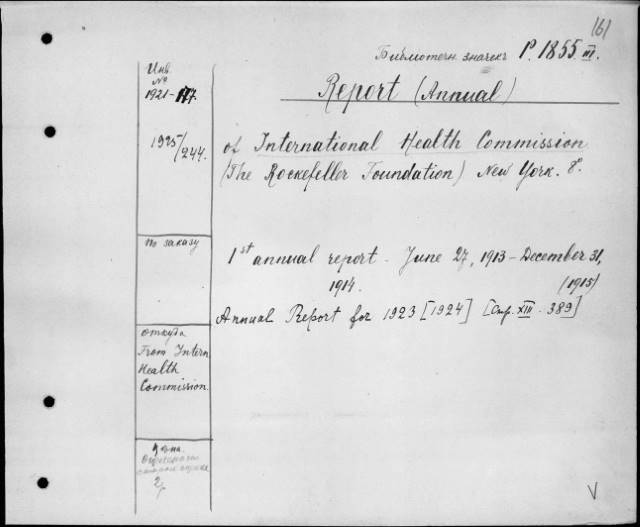 161
Библиотечн. значекъ P. 1855. III.
Инв.
№
1921-117.
Report (Annual)
1925/244.
of International Health Commission
(The Rockefeller Foundation) New York. 8°.
По заказу
1st annual report - June 27, 1913 - December 31,
1914. (1915)
Annual Report for 1923 [1924] [Стр. XIII. 389]
откуда
From Intern.
Health
Commission.
Цѣна.
V